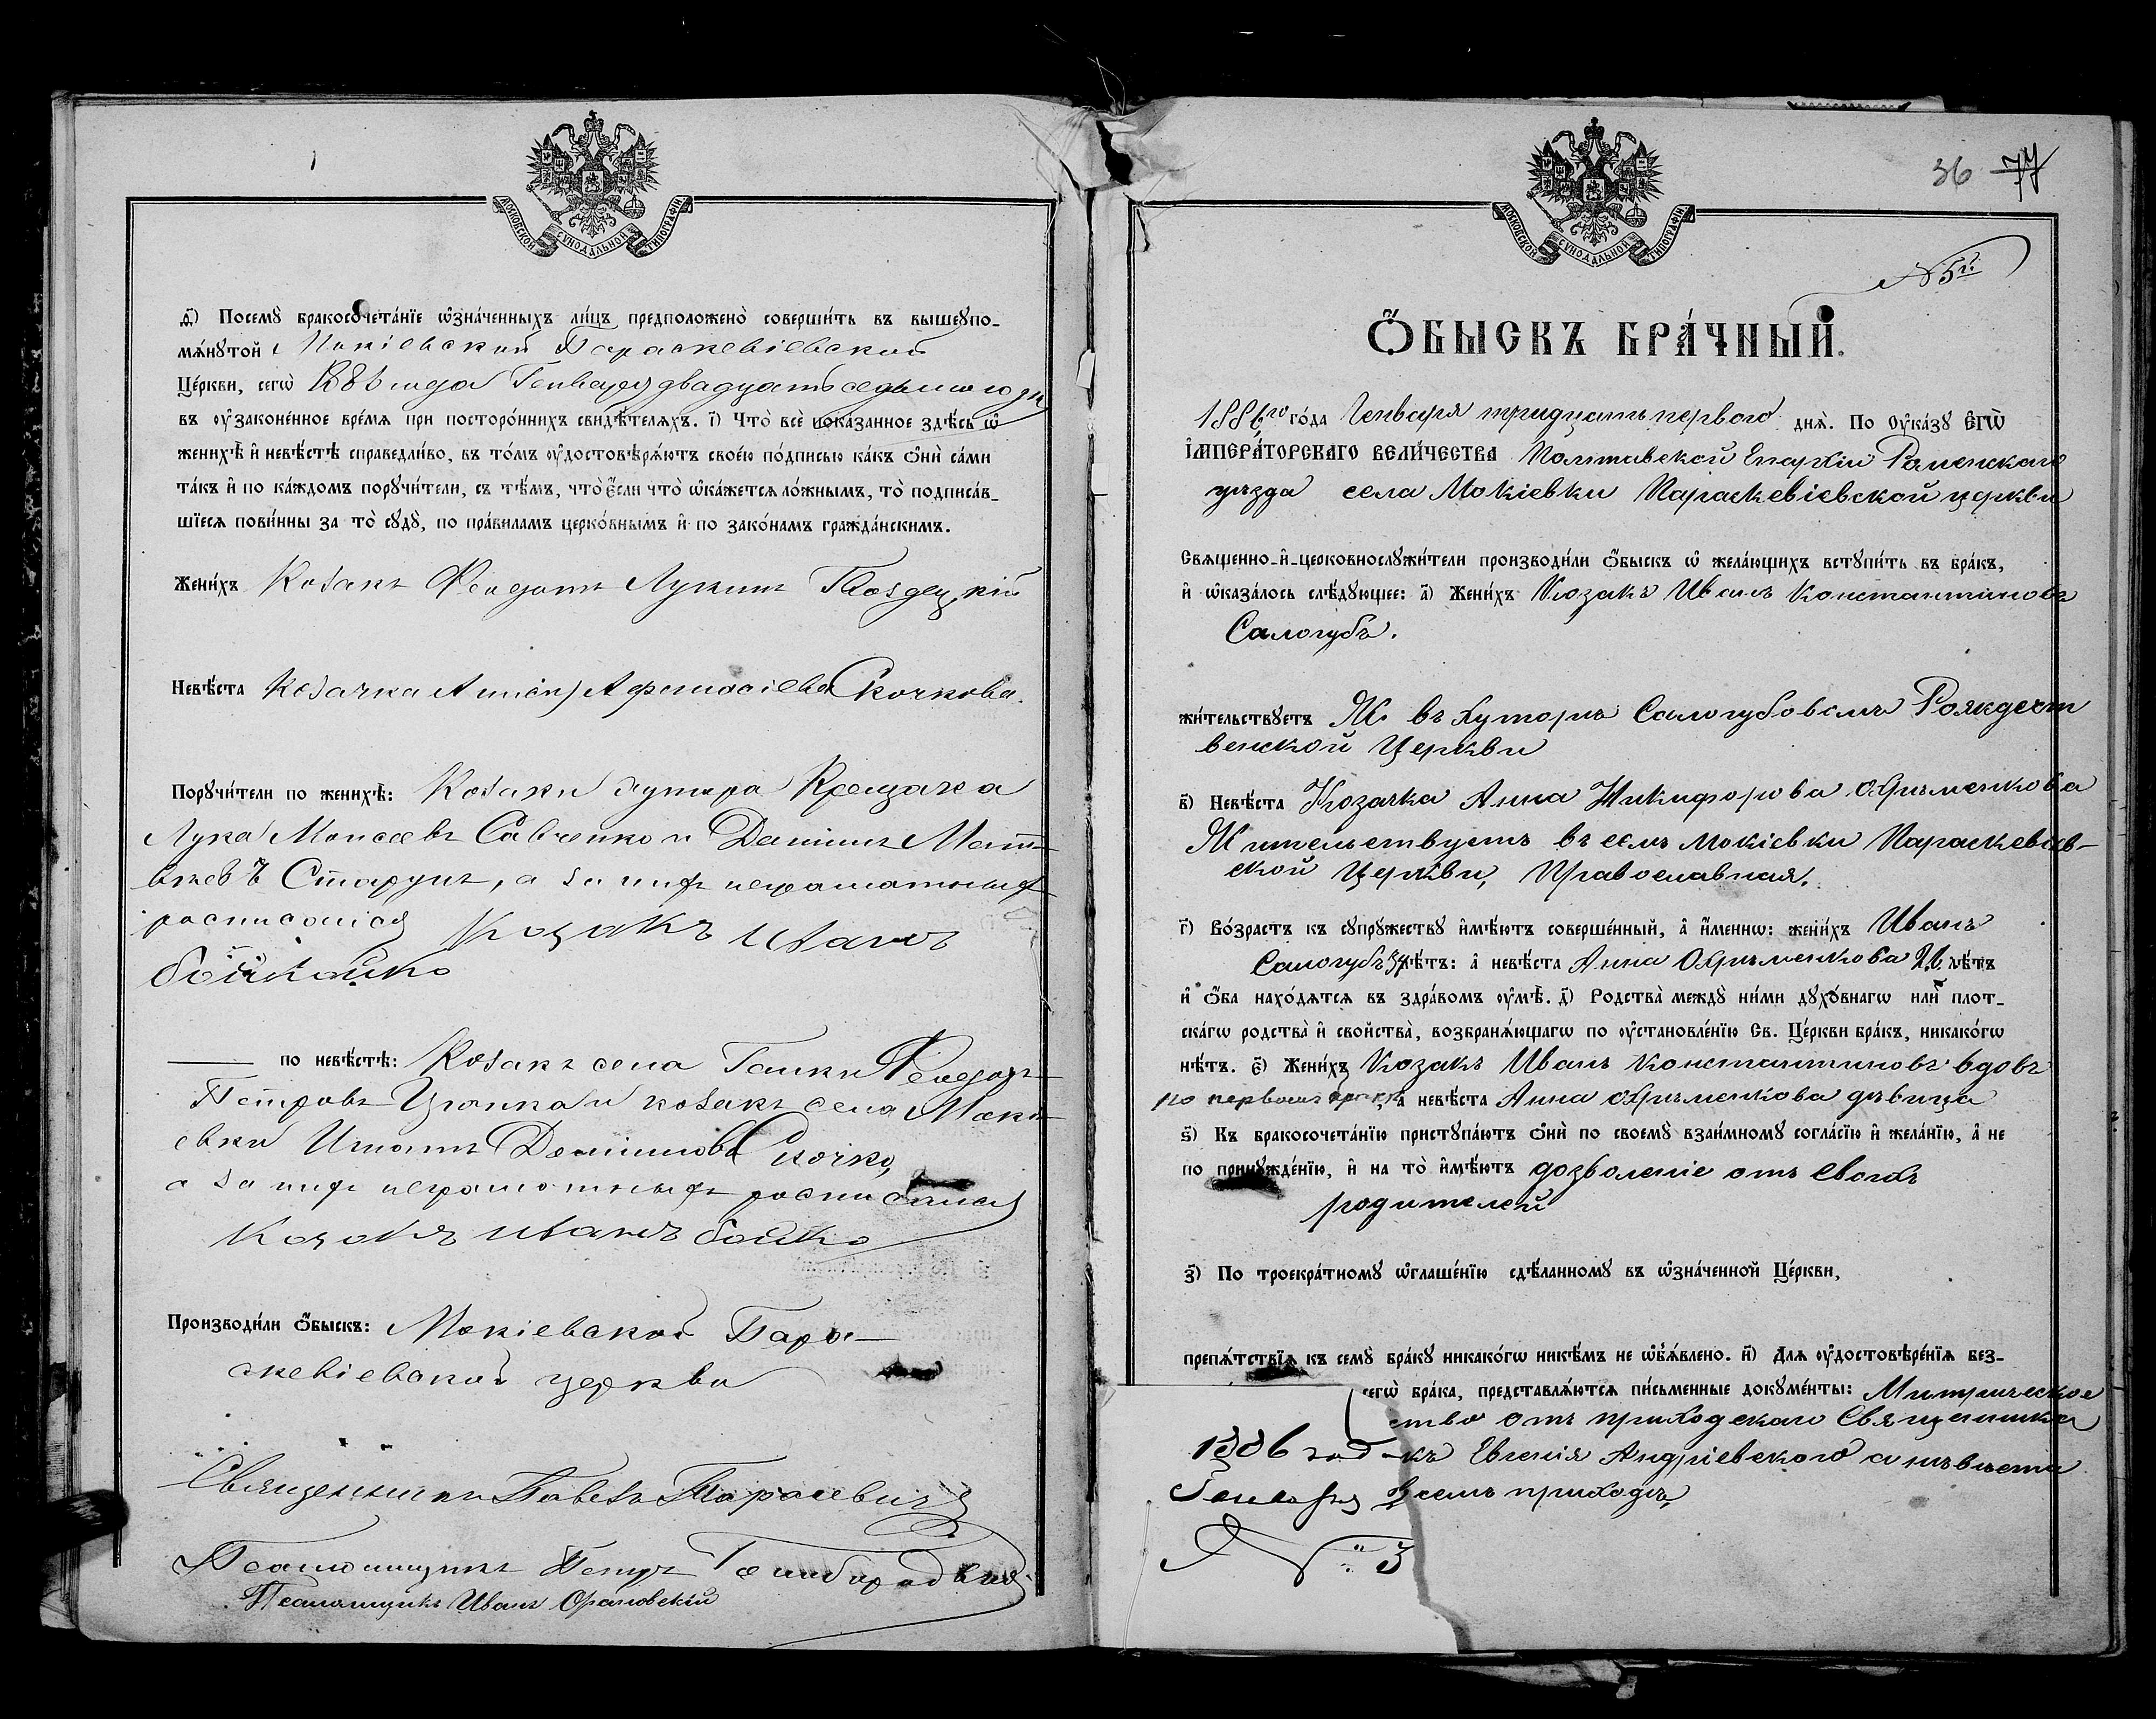 МОСКОВСКОЙ СѴНОДАЛЬНОЙ ТИПОГРАФІИ
Ѳ҃) Посемꙋ̀ бракосочета́нїе ѡ҆зна́ченныхъ ли́цъ предположено̀ соверши́ть въ вышеꙋпо-
мѧ́нꙋтой Мокіевской Параскевіевской
Це́ркви, сегѡ̀ 1886 года Генваря двадцать седьмого дня
въ ᲂу҆законе́нное вре́мѧ при посторо́ннихъ свидѣ́телѧхъ. і҃) Что̀ всѐ показанное здѣ́сь ѡ҆
женихѣ̀ и҆ невѣ́стѣ справедли́во, въ то́мъ ᲂу҆достовѣрѧ́ютъ свое́ю по́дписью ка́къ ѻ҆нѝ са́ми
та́къ и҆ по ка́ждомъ порꙋчи́тели, съ тѣ́мъ, что̀ є҆́сли что̀ ѡ҆ка́жетсѧ ло́жнымъ, то̀ подписа́в-
шїесѧ пови́нны за то̀ сꙋдꙋ̀, по пра́виламъ церко́внымъ и҆ по зако́намъ гражда́нскимъ.
Жени́хъ Козакъ Феодотъ Лукинъ
Невѣ́ста Козачка Афанасіева Скочкова.
Порꙋчи́тели по женихѣ̀: Козаки хутора Крещака
Лука Моисеевъ Савченко и Даніилъ Мат-
вѣевъ Старунъ, а за нихъ неграмотныхъ
росписался Козакъ Иванъ
бойко
по невѣ́стѣ: Козакъ села Галки Феодоръ
Петровъ и козакъ села Моки-
евки Игнатъ Данииловъ Скочко,
а за нихъ неграмотныхъ росписался
Козакъ Иванъ бойко
Производи́ли ѻ҆́быскъ: Мокіевской Пара-
скевіевской церкви
Священникъ Павелъ Тарасевичъ
Псаломщикъ Петръ
Псаломщикъ Иванъ Орановскій
36 77
МОСКОВСКОЙ СѴНОДАЛЬНОЙ ТИПОГРАФІИ
№ 5й
Ѻ҆́БЫСКЪ БРА́ЧНЫЙ.
1886го го́да Генваря тридцать первого днѧ̀. По Оу҆ка́зꙋ Є҆ГѠ̀
І҆МПЕРА́ТОРСКАГО ВЕЛИ́ЧЕСТВА Полтавской Епархіи Роменскаго
уѣзда села Мокіевки Параскевіевской церкви
Свѧще́нно-и҆-церковнослꙋжи́тели производи́ли ѻ҆́быскъ ѡ҆ жела́ющихъ встꙋпи́ть въ бра́къ,
и҆ ѡ҆каза́лось слѣ́дꙋющее: а҃) Жени́хъ Козакъ Иванъ Константиновъ
Салогубъ.
жи́тельствꙋетъ Ж. въ хуторѣ Салогубовомъ Рождест
венской Церкви
в҃) Невѣ́ста Козачка Анна Никифорова Охрѣменкова
Жительствуетъ въ селѣ Мокіевки Параскевіев-
ской Церкви, Православная.
г҃) Во́зрастъ къ сꙋпрꙋ́жествꙋ и҆мѣ́ютъ соверше́нный, а҆ и҆́меннѡ: жени́хъ Иванъ
Салогубъ лѣ́тъ: а҆ невѣ́ста Анна Охрѣменкова лѣ́тъ
и҆ ѻ҆́ба нахо́дѧтсѧ въ здра́вомъ ᲂу҆мѣ̀. д҃) Родства̀ междꙋ̀ ни́ми дꙋхо́внагѡ и҆лѝ плот-
ска́гѡ родства̀ и҆ свойства̀, возбранѧ́ющагѡ по ᲂу҆становле́нїю Св. Це́ркви бра́къ, никако́гѡ
нѣ́тъ. є҃) Жени́хъ Козакъ Иванъ Константиновъ вдовъ
по первомъ бракѣ, а҆ невѣ́ста Анна Охрѣменкова дѣвица
ѕ҃) Къ бракосочета́нїю пристꙋпа́ютъ ѻ҆нѝ по своемꙋ̀ взаи́мномꙋ согла́сїю и҆ жела́нїю, а҆ не
по принꙋжде́нїю, и҆ на то̀ и҆мѣ́ютъ дозволеніе отъ своихъ
родителей
з҃) По троекра́тномꙋ ѡ҆глаше́нїю сдѣ́ланномꙋ въ ѡ҆зна́ченной Це́ркви,
препѧ́тствїѧ къ семꙋ̀ бра́кꙋ никако́гѡ никѣ́мъ не ѡ҆б̾ѧ́влено. и҃) Длѧ ᲂу҆достовѣре́нїѧ без-
сегѡ̀ бра́ка, представлѧ́ютсѧ пи́сьменные докꙋме́нты: Митрическое
ство отъ приходскаго Священника
1886 год къ Евгенія Андріевского а невѣста
Генваря в семъ приходѣ
№ 3